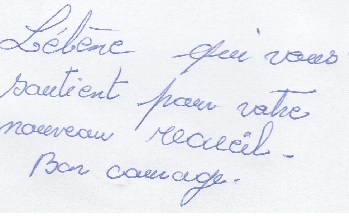 Lébène qui vous
soutient pour votre
nouveau recueil.
Bon courage.